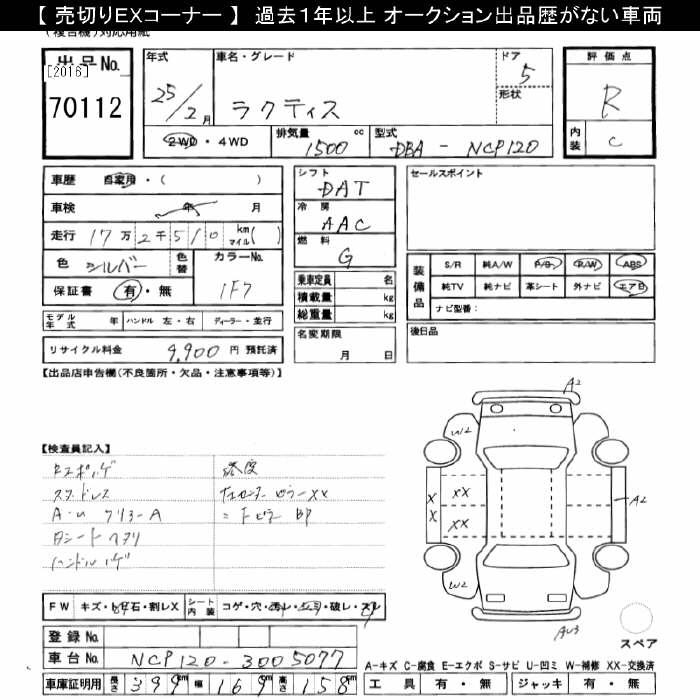 【 売切りEXコーナー 】 過去1年以上 オークション出品歴がない車両
(複合機)対応用紙
出品No.
[2016]
70112
年式
25/2月
車名・グレード
ラクティス
ドア
5
形状
2WD・4WD
排気量 1500 cc
型式 DBA - NCP120
評価点
R
内装 C
車歴 自家用・( )
車検 年 月
走行 17万2千510 km マイル( )
色 シルバー
色替
カラーNo.
1F7
保証書 有・無
モデル年式 年 ハンドル 左・右 ディーラー・並行
リサイクル料金 9,900 円 預託済
シフト
DAT
冷房
AAC
燃料
G
乗車定員 名
積載量 kg
総重量 kg
名変期限
月 日
セールスポイント
装備品
S/R 純A/W P/S P/W ABS
純TV 純ナビ 革シート 外ナビ エアB
ナビ型番:
後日品
【出品店申告欄(不良箇所・欠品・注意事項等)】
【検査員記入】
スタッドレス
Dシートヘタリ
ハンドルハゲ
A2
W2
XX
XX
X
X
A2
W2
AU3
スペア
FW キズ・トビ石・割レX
シート内装 コゲ・穴・汚レ・シミ・破レ・スレ
登録No.
車台No. NCP120-3005077
車庫証明用 長さ 399cm 幅 169cm 高さ 158cm
A-キズ C-腐食 E-エクボ S-サビ U-凹ミ W-補修 XX-交換済
工具 有・無 ジャッキ 有・無